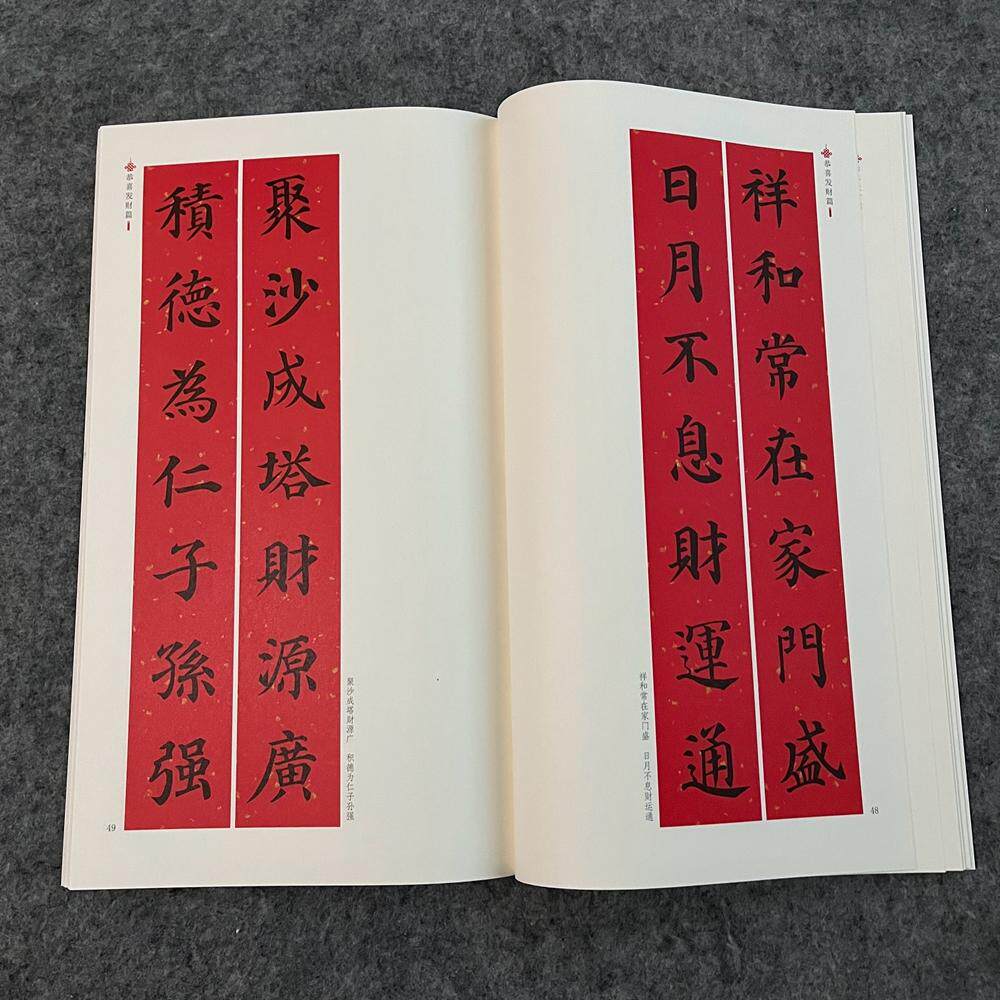 恭喜发财篇
祥和常在家門盛
日月不息財運通
祥和常在家门盛 日月不息财运通
48
恭喜发财篇
聚沙成塔財源廣
積德為仁子孫强
聚沙成塔财源广 积德为仁子孙强
49